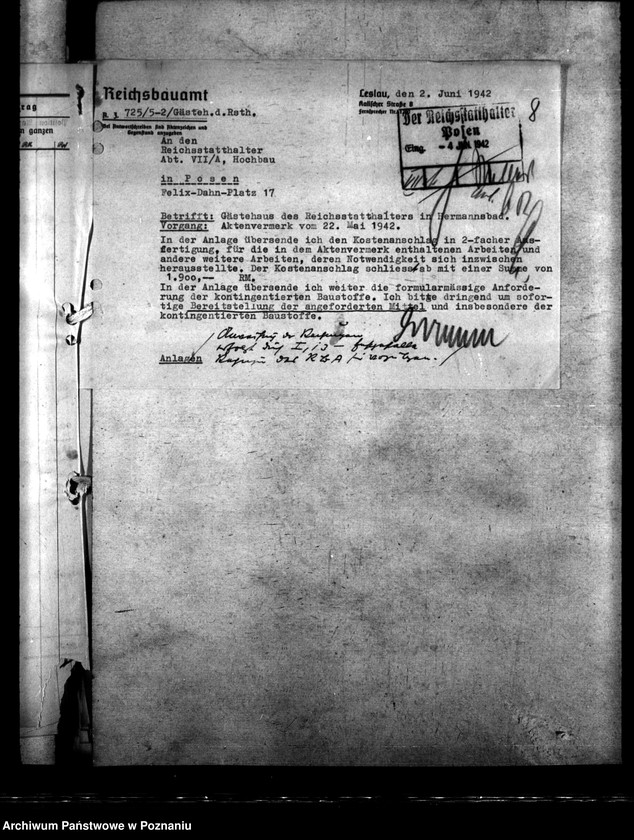 rag
n ganzen
RM
Reichsbauamt
B 3 725/5-2/Gästeh.d.Rsth.
Bei Antwortschreiben sind Aktenzeichen und
Gegenstand anzugeben
Leslau, den 2. Juni 1942
Kalischer Straße 8
Fernsprecher Nr.
Der Reichsstatthalter
Posen
Eing. - 4. JUN. 1942
8
An den
Reichsstatthalter
Abt. VII/A, Hochbau
in Posen
Felix-Dahn-Platz 17
Betrifft: Gästehaus des Reichsstatthalters in Hermannsbad.
Vorgang: Aktenvermerk vom 22. Mai 1942.
In der Anlage übersende ich den Kostenanschlag in 2-facher Aus-
fertigung, für die in dem Aktenvermerk enthaltenen Arbeiten und
andere weitere Arbeiten, deren Notwendigkeit sich inzwischen
herausstellte. Der Kostenanschlag schliesst ab mit einer Summe von
1.900,— RM.
In der Anlage übersende ich weiter die formularmässige Anforde-
rung der kontingentierten Baustoffe. Ich bitte dringend um sofor-
tige Bereitstellung der angeforderten Mittel und insbesondere der
kontingentierten Baustoffe.
Anlagen
Archiwum Państwowe w Poznaniu